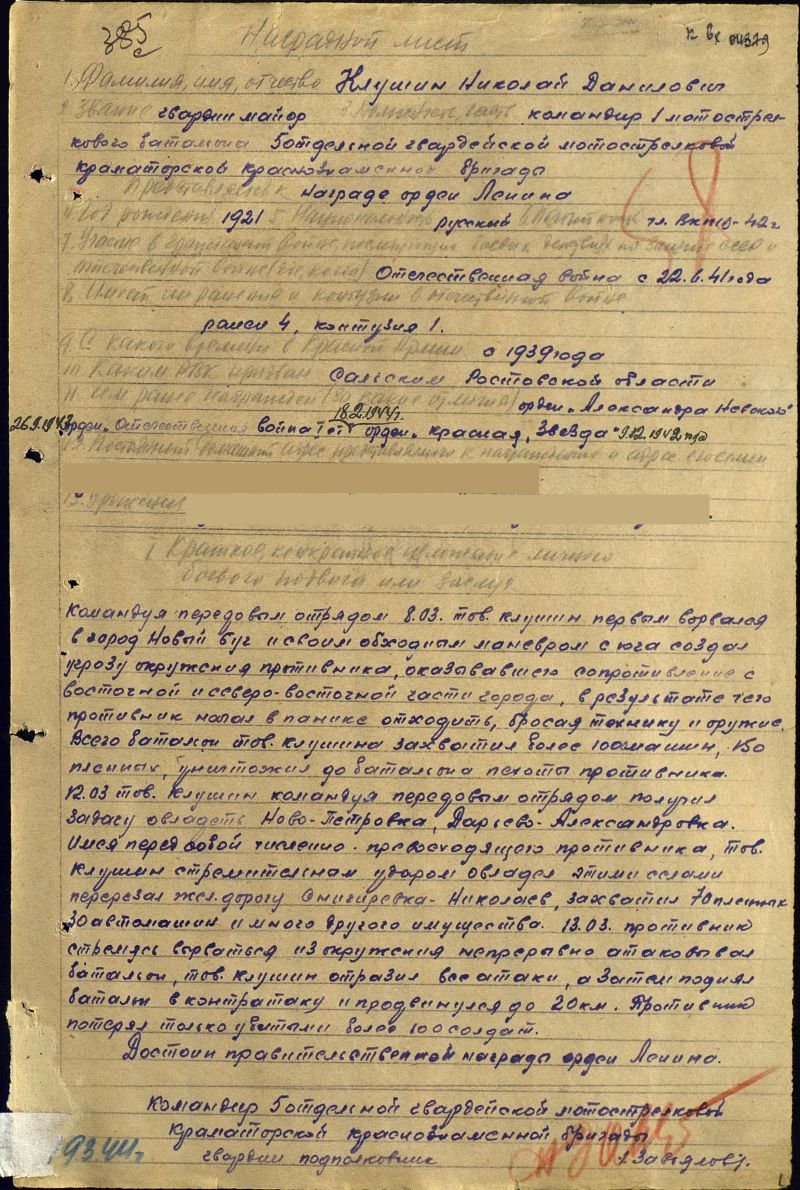 385
с
Наградной лист
к вх 04379
1. Фамилия, имя, отчество Клушин Николай Данилович
2. Звание гвардии майор 3. Должность, часть командир 1 мотострел-
кового батальона 5 отдельной гвардейской мотострелковой
Краматорской Краснознаменной бригады
Представляется к награде орден Ленина
4. Год рождения 1921 5. Национальность русский 6. Партийность чл. ВКП(б) - 42 г
7. Участие в гражданской войне, последующих боевых действиях по защите СССР и
отечественной войне (где, когда) Отечественная война с 22.6.41 года
8. Имеет ли ранения и контузии в отечественной войне
ранен 4, контузия 1.
9. С какого времени в Красной Армии с 1939 года
10. Каким РВК призван Сальским Ростовской области
11. Чем ранее награжден (за какие отличия) орден „Александра Невского"
26.9.1943 орден „Отечественная война I ст" 18.2.1944г. орден „Красная Звезда" 9.12.1942
12. Постоянный домашний адрес представляемого к награждению и адрес его семьи
I Краткое, конкретное изложение личного
боевого подвига или заслуг
Командуя передовым отрядом 8.03. тов. Клушин первым ворвался
в город Новый Буг и своим обходным маневром с юга создал
угрозу окружения противника, оказывавшего сопротивление с
восточной и северо-восточной части города, в результате чего
противник начал в панике отходить, бросая технику и оружие.
Всего батальон тов. Клушина захватил более 100 машин, 150
пленных, уничтожил до батальона пехоты противника.
12.03 тов. Клушин командуя передовым отрядом получил
задачу овладеть Ново-Петровка, Дарьево-Александровка.
Имея перед собой численно-превосходящего противника, тов.
Клушин стремительным ударом овладел этими селами
перерезал жел. дорогу Снигиревка-Николаев, захватил 70 пленных
30 автомашин и много другого имущества. 13.03. противник
стремясь вырваться из окружения непрерывно атаковывал
батальон, тов. Клушин отразил все атаки, а затем поднял
батальон в контратаку и продвинулся до 20 км. Противник
потерял только убитыми более 100 солдат.
Достоин правительственной награды орден Ленина.
Командир 5 отдельной гвардейской мотострелковой
Краматорской Краснознаменной бригады
гвардии подполковник /Завьялов/.